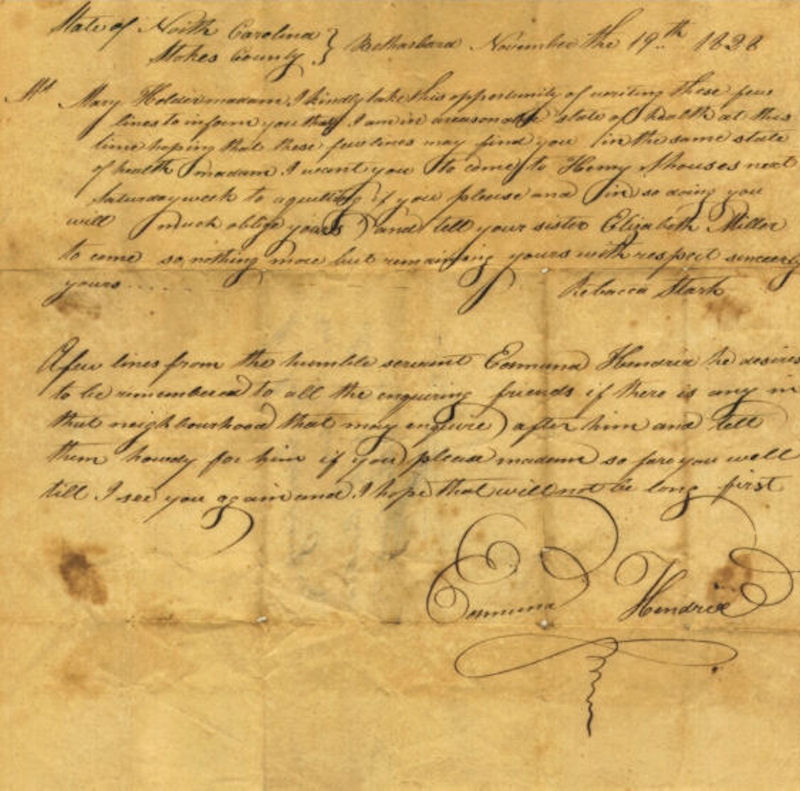 State of North Carolina } Bethabara November the 19th 1828
Stokes County }
Mrs Mary Holder madam I kindly take this opportunity of writing these few
lines to inform you that I am in a reasonable state of health at this
time hoping that these few lines may find you in the same state
of health madam I want you to come to Henry Shouses next
Saturday week to a quilting if you please and in so doing you
will much oblige yours and tell your sister Elizabeth Miller
to come so nothing more but remaining yours with respect sincerely
yours .....
Rebecca Stark
A few lines from the humble servant Edmund Hendrix he desires
to be remembered to all the enquiring friends if there is any in
that neighbourhood that may enquire after him and tell
them howdy for him if you please madam so fare you well
till I see you again and I hope that will not be long first
Edmund Hendrix